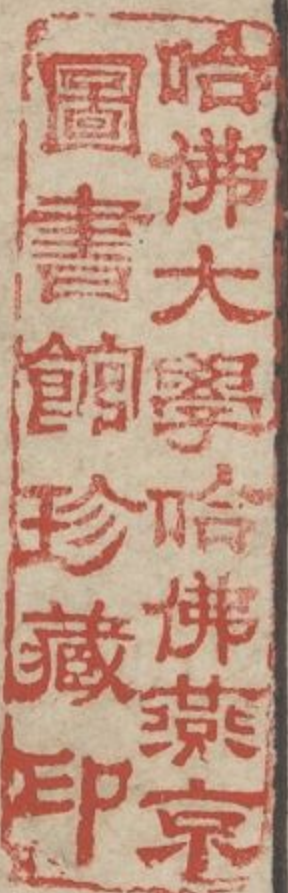 哈佛大學哈佛燕京
圖書館珍藏印